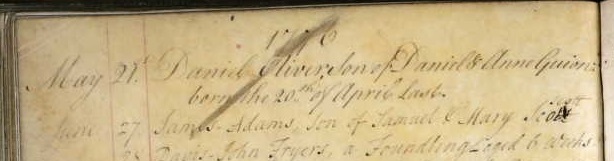 May 21. Daniel Oliver, Son of Daniel & Anne Guion
born the 20th of April last.
June 27. James Adams, Son of Samuel & Mary Scott
28. John Fryers, a Foundling aged 6 Weeks